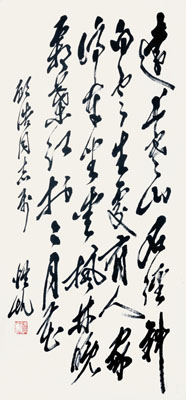 遠上寒山石徑斜
白雲生處有人家
停車坐愛楓林晚
霜葉紅於二月花
浩同志屬